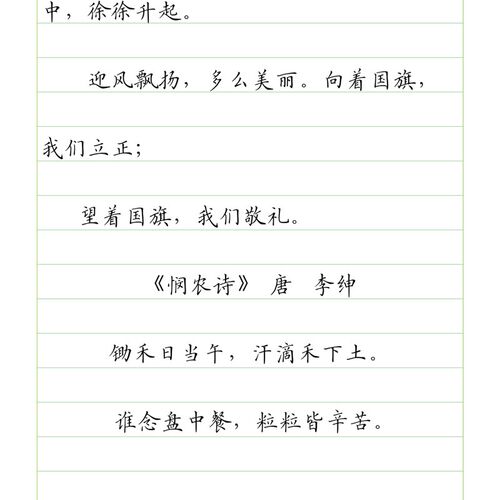 中，徐徐升起。
迎风飘扬，多么美丽。向着国旗，
我们立正；
望着国旗，我们敬礼。
《悯农诗》 唐 李绅
锄禾日当午，汗滴禾下土。
谁念盘中餐，粒粒皆辛苦。